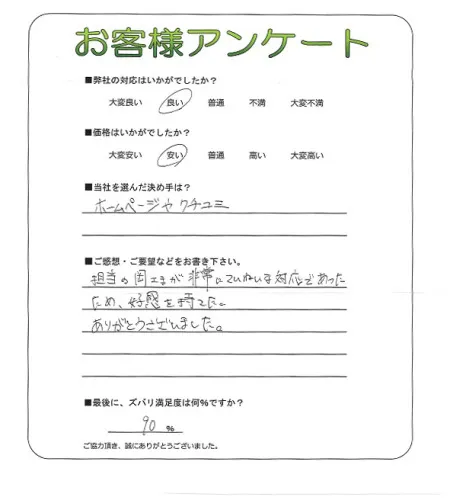 お客様アンケート
■弊社の対応はいかがでしたか？
大変良い 良い 普通 不満 大変不満
■価格はいかがでしたか？
大変安い 安い 普通 高い 大変高い
■当社を選んだ決め手は？
ホームページや クチコミ
■ご感想・ご要望などをお書き下さい。
担当の岡エまが非常にていねいな対応であった
ため、好感を持てた。
ありがとうございました。
■最後に、ズバリ満足度は何％ですか？
90 %
ご協力頂き、誠にありがとうございました。